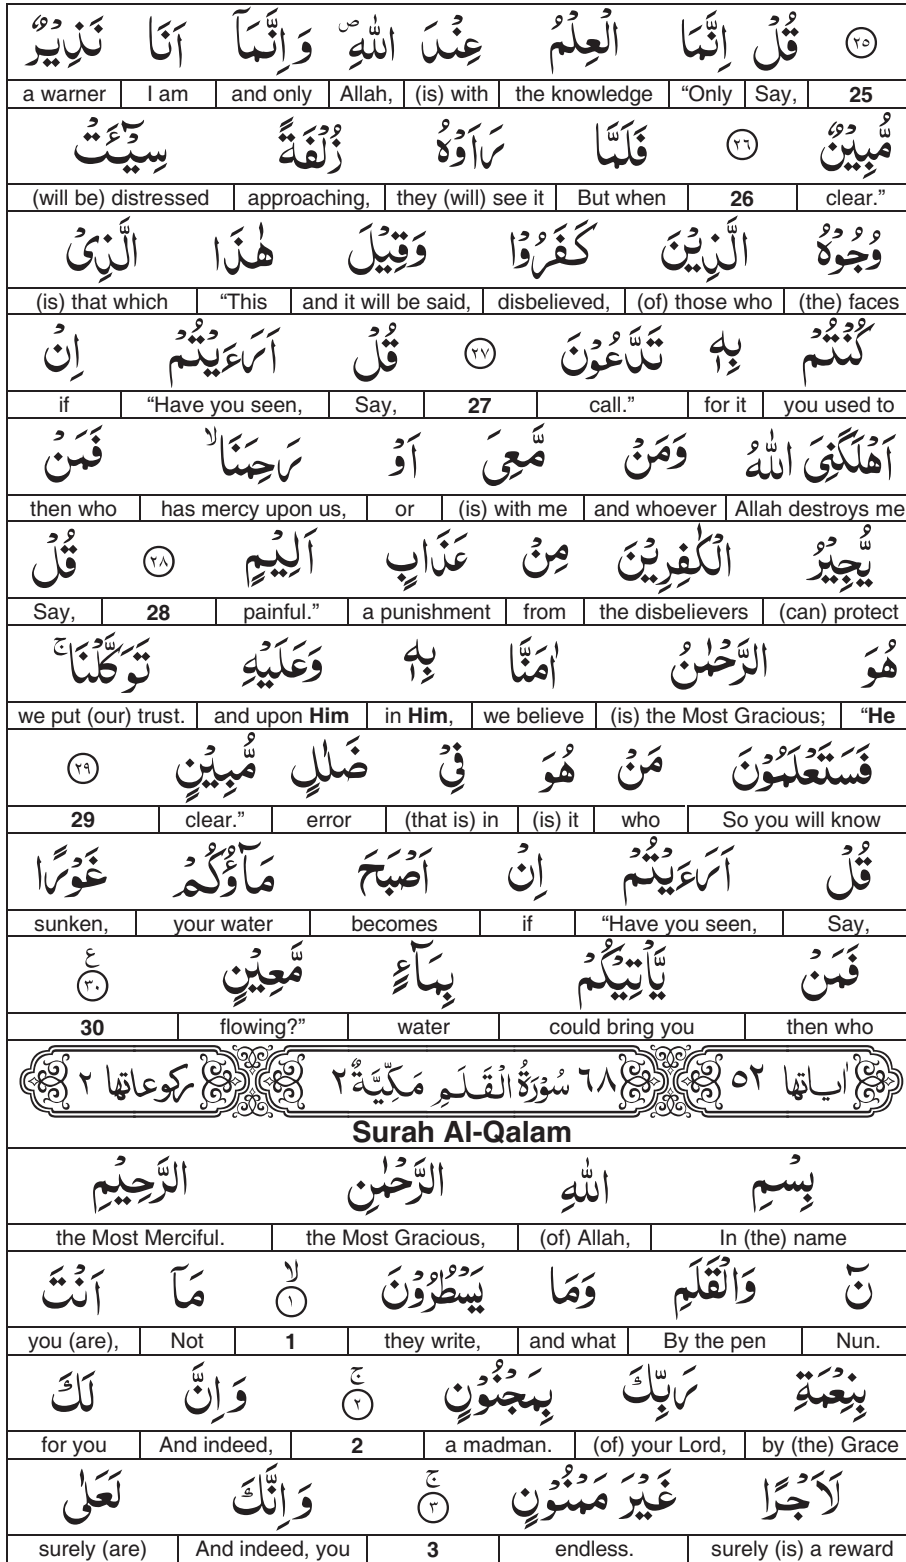 ٢٥ قُلۡ اِنَّمَا الۡعِلۡمُ عِنۡدَ اللّٰهِ ۖ وَاِنَّمَاۤ اَنَا نَذِيۡرٌ
25 Say, “Only the knowledge (is) with Allah, and only I am a warner
مُّبِيۡنٌ ٢٦ فَلَمَّا رَاَوۡهُ زُلۡفَةً سِيۡٓئَتۡ
clear.” 26 But when they (will) see it approaching, (will be) distressed
وُجُوۡهُ الَّذِيۡنَ كَفَرُوۡا وَقِيۡلَ هٰذَا الَّذِىۡ
(the) faces (of) those who disbelieved, and it will be said, “This (is) that which
كُنۡتُمۡ بِهٖ تَدَّعُوۡنَ ٢٧ قُلۡ اَرَءَيۡتُمۡ اِنۡ
you used to for it call.” 27 Say, “Have you seen, if
اَهۡلَكَنِىَ اللّٰهُ وَمَنۡ مَّعِىَ اَوۡ رَحِمَنَا ۙ فَمَنۡ
Allah destroys me and whoever (is) with me or has mercy upon us, then who
يُّجِيۡرُ الۡكٰفِرِيۡنَ مِنۡ عَذَابٍ اَلِيۡمٍ ٢٨ قُلۡ
(can) protect the disbelievers from a punishment painful.” 28 Say,
هُوَ الرَّحۡمٰنُ اٰمَنَّا بِهٖ وَعَلَيۡهِ تَوَكَّلۡنَا ۚ
“He (is) the Most Gracious; we believe in Him, and upon Him we put (our) trust.
فَسَتَعۡلَمُوۡنَ مَنۡ هُوَ فِىۡ ضَلٰلٍ مُّبِيۡنٍ ٢٩
So you will know who (is) it (that is) in error clear.” 29
قُلۡ اَرَءَيۡتُمۡ اِنۡ اَصۡبَحَ مَآؤُكُمۡ غَوۡرًا
Say, “Have you seen, if becomes your water sunken,
فَمَنۡ يَّاۡتِيۡكُمۡ بِمَآءٍ مَّعِيۡنٍ ٣٠ ع
then who could bring you water flowing?” 30
اٰياتها ٥٢ ٦٨ سُوۡرَةُ الۡقَلَمِ مَكِّيَّةٌ ٢ ركوعاتها ٢
Surah Al-Qalam
بِسۡمِ اللّٰهِ الرَّحۡمٰنِ الرَّحِيۡمِ
In (the) name (of) Allah, the Most Gracious, the Most Merciful.
نٓ وَالۡقَلَمِ وَمَا يَسۡطُرُوۡنَ ۙ ١ مَاۤ اَنۡتَ
Nun. By the pen and what they write, 1 Not you (are),
بِنِعۡمَةِ رَبِّكَ بِمَجۡنُوۡنٍ ۚ ٢ وَاِنَّ لَكَ
by (the) Grace (of) your Lord, a madman. 2 And indeed, for you
لَاَجۡرًا غَيۡرَ مَمۡنُوۡنٍ ۚ ٣ وَاِنَّكَ لَعَلٰى
surely (is) a reward endless. 3 And indeed, you surely (are)